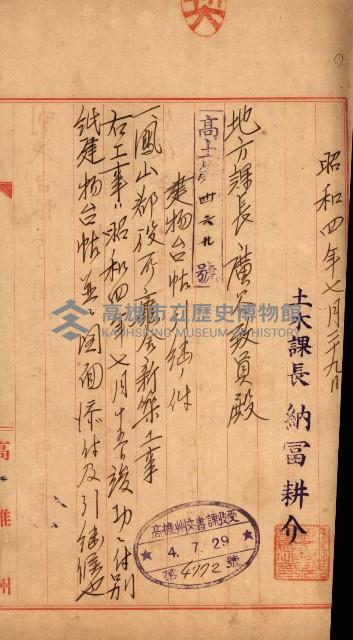 昭和四年七月二十九日
土木課長 納冨耕介
地方課長 廣谷致員殿
高土第卅六九號
建物台帖引繼ノ件
一鳳山郡役所廳舍新築工事
右工事ハ昭和四年七月十五日竣功ニ付別
紙建物台帖並ニ圖面添付及引繼候也
高雄州文書課收受
4.7.29
第4772號
高雄市立歷史博物館
KAOHSIUNG MUSEUM OF HISTORY
高雄州